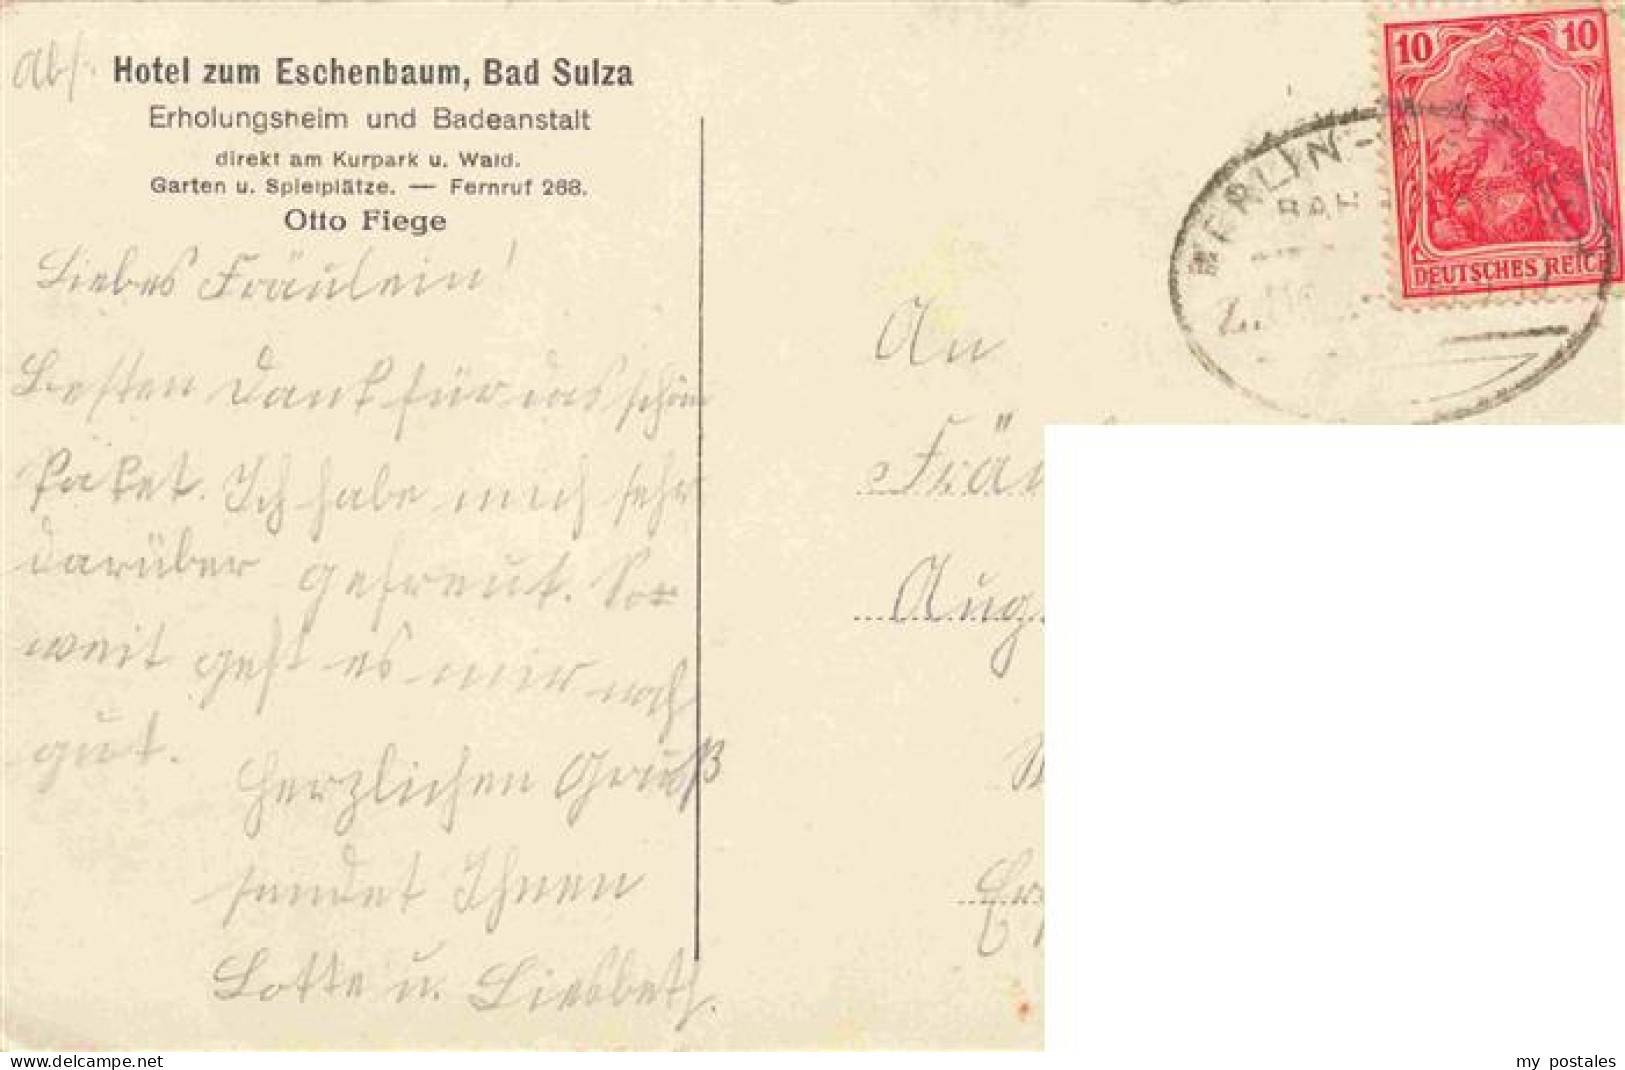 abs.
Hotel zum Eschenbaum, Bad Sulza
Erholungsheim und Badeanstalt
direkt am Kurpark u. Wald.
Garten u. Spielplätze. — Fernruf 268.
Otto Fiege
Liebes Fräulein!
Besten Dank für das schöne
Paket. Ich habe mich sehr
darüber gefreut. So-
weit geht es mir noch
gut.
Herzlichen Gruß
sendet Ihnen
Lotte u. Liesbeth.
10 10
DEUTSCHES REICH
BERLIN-
BAH
An
Fräu
Aug
my postales